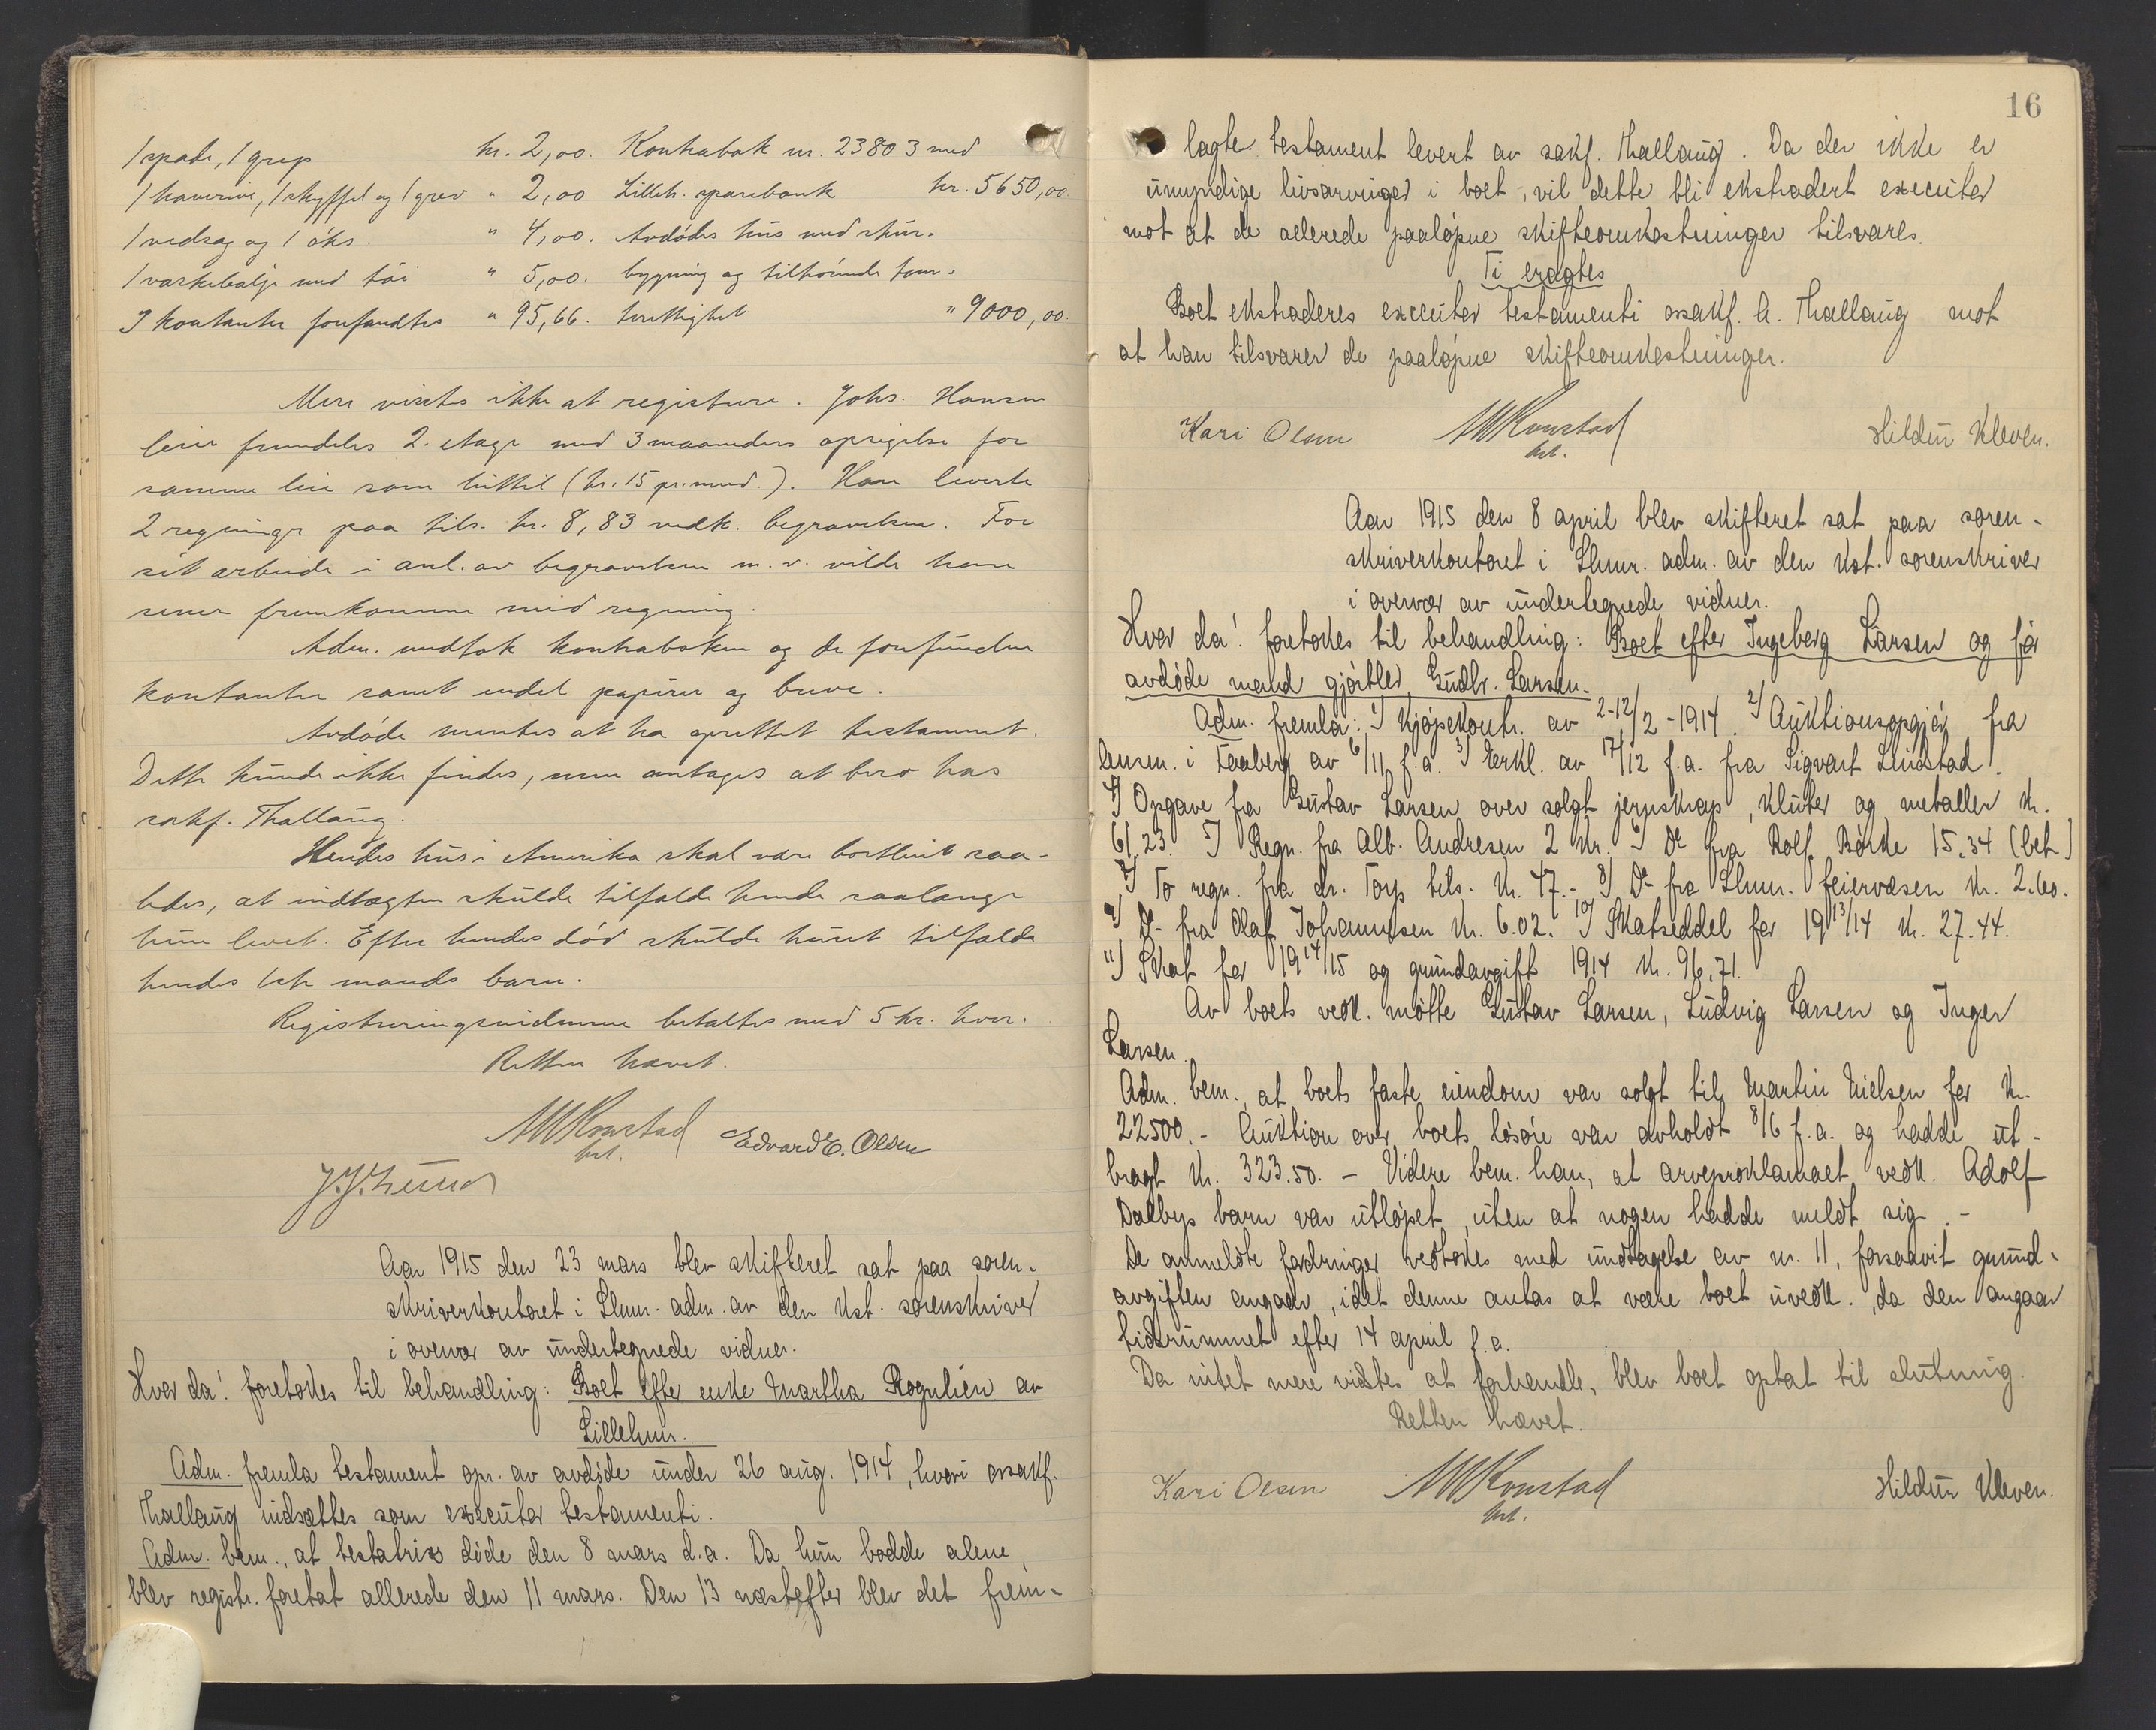 1 spade, 1 grep kr. 2,00.
1 haverive, 1 skyffel og 1 grev " 2,00
1 vedsag og 1 öks. " 4,00.
1 vaskebalje med töi " 5,00.
I kontanter forefandtes " 95,66.
Kontrabok nr. 23803 med
Lilleh. sparebank kr. 5650,00.
Avdödes hus med skur-
bygning og tilhörende tom-
terettighet " 9000,00.
Mere vistes ikke at registrere. Johs. Hansen
leier fremdeles 2. etage med 3 maaneders opsigelse for
samme leie som hittil (kr. 15 pr. mnd.). Han leverte
2 regninger paa tils. kr. 8,83 vedk. begravelsen. For
sit arbeide i anl. av begravelsen m. v. vilde han
senere fremkomme med regning.
Adm. mottok kontraboken og de forefundne
kontanter samt endel papirer og breve.
Avdöde mentes at ha oprettet testament.
Dette kunde ikke findes, men antages at bero hos
sakf. Thallaug.
Hendes hus i Amerika skal være bortleiet saa-
ledes, at indtægten skulde tilfalde hende saalænge
hun levet. Efter hendes död skulde huset tilfalde
hendes 1ste mands barn.
Registreringsvidnerne betaltes med 5 kr. hver.
Retten hævet.
MKonstad
kst.
Edvard E. Olsen
Aar 1915 den 23 mars blev skifteret sat paa soren-
skriverkontoret i Lhmr. adm. av den kst. sorenskriver
i overvær av undertegnede vidner.
Hvor da! foretokes til behandling: Boet efter enke Martha Rognlien av
Lillehmr.
Adm. fremla testament opr. av avdöde under 26 aug. 1914, hvori osakf.
Thallaug indsættes som executor testamenti.
Adm. bem., at testatrix döde den 8 mars d.a. Da hun bodde alene,
blev registr. foretat allerede den 11 mars. Den 13 næstefter blev det frem-
16
lagte testament levert av sakf. Thallaug. Da der ikke er
umyndige livsarvinger i boet, vil dette bli ekstradert executor
mot at de allerede paalöpne skifteomkostninger tilsvares.
Ti eragtes
Boet ekstraderes executor testamenti osakf. A. Thallaug mot
at han tilsvarer de paalöpne skifteomkostninger.
Kari Olsen
MKonstad
kst.
Hildur Kleven.
Aar 1915 den 8 april blev skifteret sat paa soren-
skriverkontoret i Lhmr. adm. av den kst. sorenskriver
i overvær av undertegnede vidner.
Hvor da! foretokes til behandling: Boet efter Ingeborg Larsen og för
avdöde mand gjörtler Gudbr. Larsen.
Adm. fremla: 1) Kjöpekontr. av 2-12/2-1914. 2) Auktionsopgjör fra
lensm. i Faaberg av 6/11 f.a. 3) Erkl. av 17/12 f.a. fra Sigvart Lindstad.
4) Opgave fra Gustav Larsen over solgt jernskrap, kluter og metaller kr.
61,23. 5) Regn. fra Alb. Andresen 2 kr. 6) Do fra Rolf Börke 15,34 (bet.)
7) To regn. fra dr. Torp tils. kr. 47.- 8) Do fra Lhmr. feiervæsen kr. 2.60.
9) Do fra Olaf Johannesen kr. 6.02. 10) Skatseddel for 1913/14 kr. 27.44.
11) Skat for 1914/15 og grundavgift 1914 kr. 96,71.
Av boets vedk. mötte Gustav Larsen, Ludvig Larsen og Inger
Larsen.
Adm. bem., at boets faste eiendom var solgt til Martin Nielsen for kr.
22500.- Auktion over boets lösöre var avholdt 8/6 f.a. og hadde ut-
bragt kr. 323.50. - Videre bem. han, at arveproklamaet vedk. Adolf
Dalbys barn var utlöpet, uten at nogen hadde meldt sig. -
De anmeldte fordringer vedtokes med undtagelse av nr. 11, forsaavit grund-
avgiften angaar, idet denne antas at være boet uvedk., da den angaar
tidsrummet efter 14 april f.a.
Da intet mere vistes at forhandle, blev boet optat til slutning.
Retten hævet.
Kari Olsen
MKonstad
kst.
Hildur Kleven.